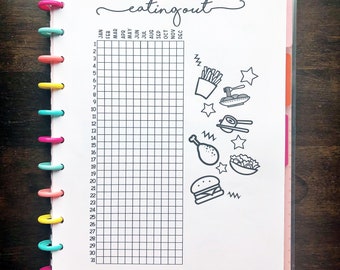 eating out
JAN FEB MAR APR MAY JUN JUL AUG SEP OCT NOV DEC
1
2
3
4
5
6
7
8
9
10
11
12
13
14
15
16
17
18
19
20
21
22
23
24
25
26
27
28
29
30
31